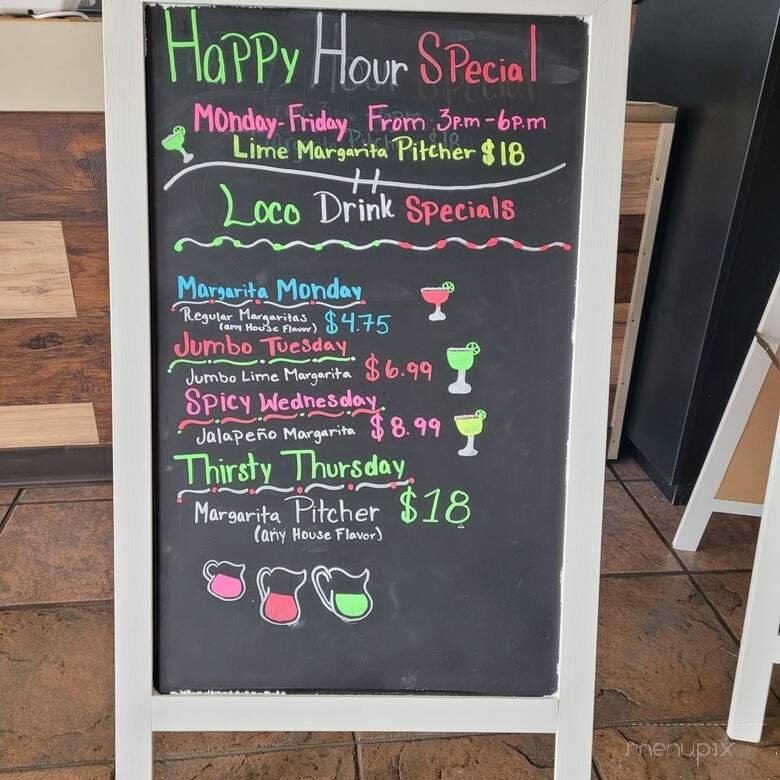 Happy Hour Special
Monday-Friday From 3p.m-6p.m
Lime Margarita Pitcher $18
Loco Drink Specials
Margarita Monday
Regular Margaritas
(any House Flavor) $4.75
Jumbo Tuesday
Jumbo Lime Margarita $6.99
Spicy Wednesday
Jalapeño Margarita $8.99
Thirsty Thursday
Margarita Pitcher $18
(any House Flavor)
menupix